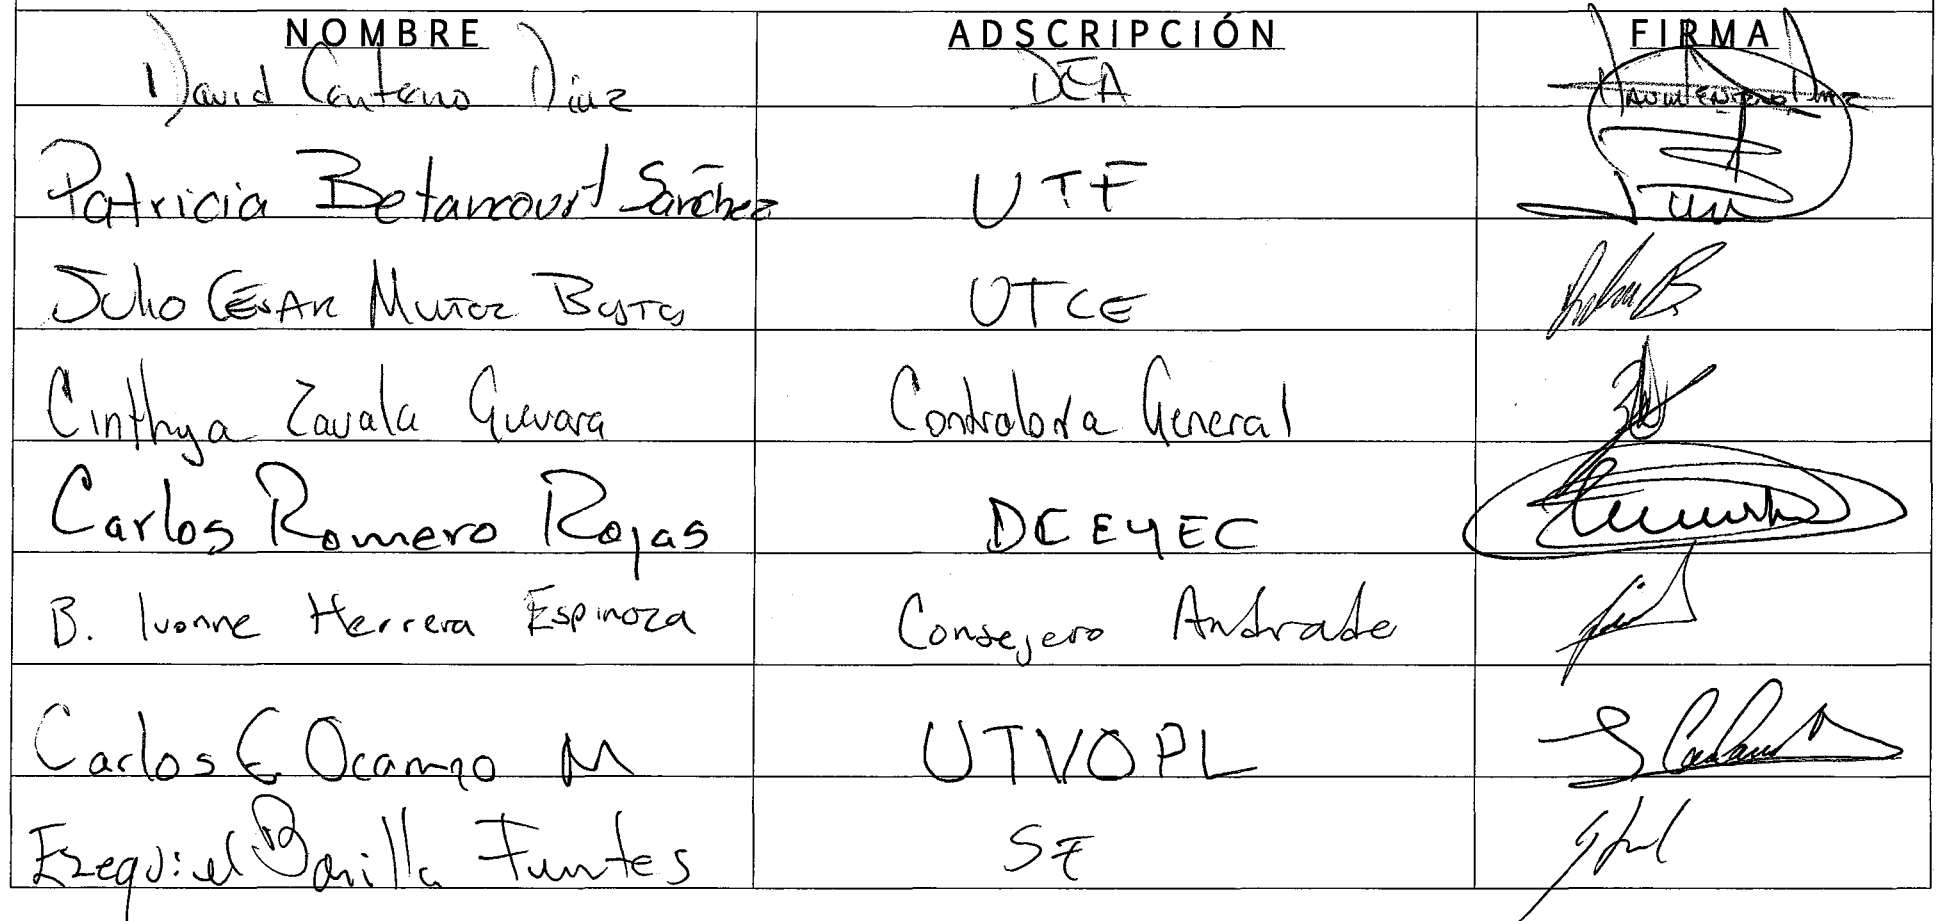 NOMBRE ADSCRIPCIÓN FIRMA
David Centeno Diaz DEA
Patricia Betancourt Sánchez UTF
Julio CÉSAR MUÑOZ UTCE
Cinthya Zavala Guevara Contraloría General
Carlos Romero Rojas DCEYEC
B. Ivonne Herrera Espinoza Consejero Andrade
Carlos E Ocampo M UTVOPL
Ezequiel Bonilla Fuentes SE